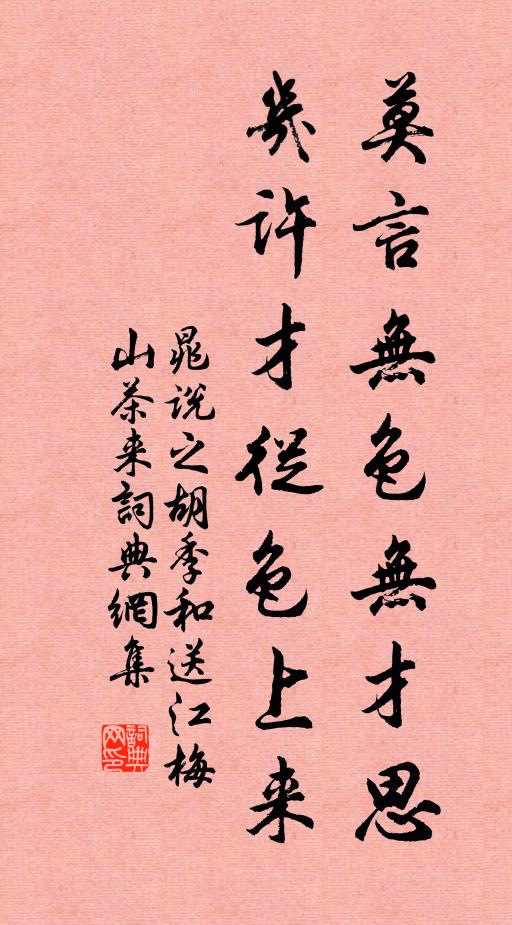 莫言無色無才思
幾許才從色上来
晁說之胡季和送江梅
山茶来詞典網集
詞典
网印